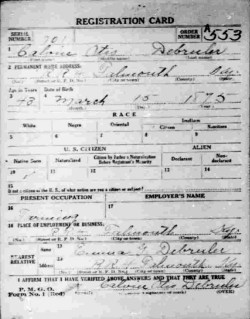 REGISTRATION CARD
SERIAL NUMBER 701 ORDER NUMBER A 553
1 Calvin Otis Debruler
(First name) (Middle name) (Last name)
2 PERMANENT HOME ADDRESS:
R.R. Falmouth Ky.
Age in Years Date of Birth
3 43 4 March 15 1875
RACE
White Negro Oriental Indian
Citizen Noncitizen
5 6 7 8 9
U. S. CITIZEN ALIEN
Native Born Naturalized Citizen by Father's Naturalization Before Registrant's Majority Declarant Non-declarant
10 11 12 13 14
15
If not a citizen of the U. S., of what nation are you a citizen or subject?
PRESENT OCCUPATION EMPLOYER'S NAME
16 Farming 17
18 PLACE OF EMPLOYMENT OR BUSINESS:
Falmouth Ky.
NEAREST RELATIVE
Name 19 Emma Debruler
Address 20 R.R. Falmouth Ky.
I AFFIRM THAT I HAVE VERIFIED ABOVE ANSWERS AND THAT THEY ARE TRUE
P. M. G. O.
Form No. 1 (Red) Calvin Otis Debruler